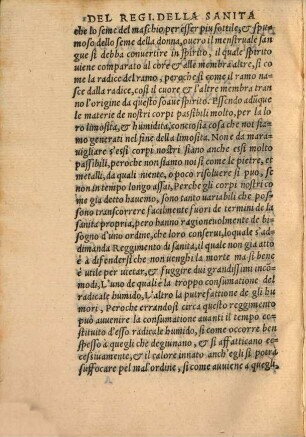 DEL REGI. DELLA SANITA
che lo seme del maschio, per esser piu sottile, & spumoso
moso dello seme della donna, overo il menstruale san
gue si debba convertire in spirito, il quale spirito
uiene comparato al core & alle membra altre, si co
me la radice del ramo, peroche si come il ramo nasce
dalla radice, cosi il cuore & l'altre membra tran
no l'origine da questo soave spirito. Essendo adūque
le materie de nostri corpi passibili molto, per la lo
ro limosità, & humidità, conciosia cosa che noi sia
mo generati nel fine della limosità. Non è da mara
uigliare s'esti corpi nostri siano anche essi molto
passibili, peroche non siamo noi si come le pietre, et
metalli, da quali niente, o poco risoluere si puo, se
non in tempo longo assai, Perche gli corpi nostri co
me gia detto hauemo, sono tanto uariabili che pos
sono transcorrere facilmente fuori de termini de la
sanita propria, pero hanno ragioneuolmente de bi
sogno d'uno ordine, che loro conserui, lo quale s'ad
dimanda Reggimento di sanita, il quale non gia atto
è à difendersi che non uenghi la morte ma si bene
è utile per uietar, & fuggire dui grandissimi inco
modi, L'uno de quali è la troppo consumatione del
radicale humido, L'altro la putrefattione de gli hu
mori, Peroche errandosi circa questo reggimento
può auuenire la consumatione auanti il tempo co
stituito d'esso radicale humido, si come occorre ben
spesso à quegli che degiunano, & si affatticano ec
cessiuamente, & il calore innato anch'egli si potrà
suffocare pel mal'ordine, si come auuiene a quegli